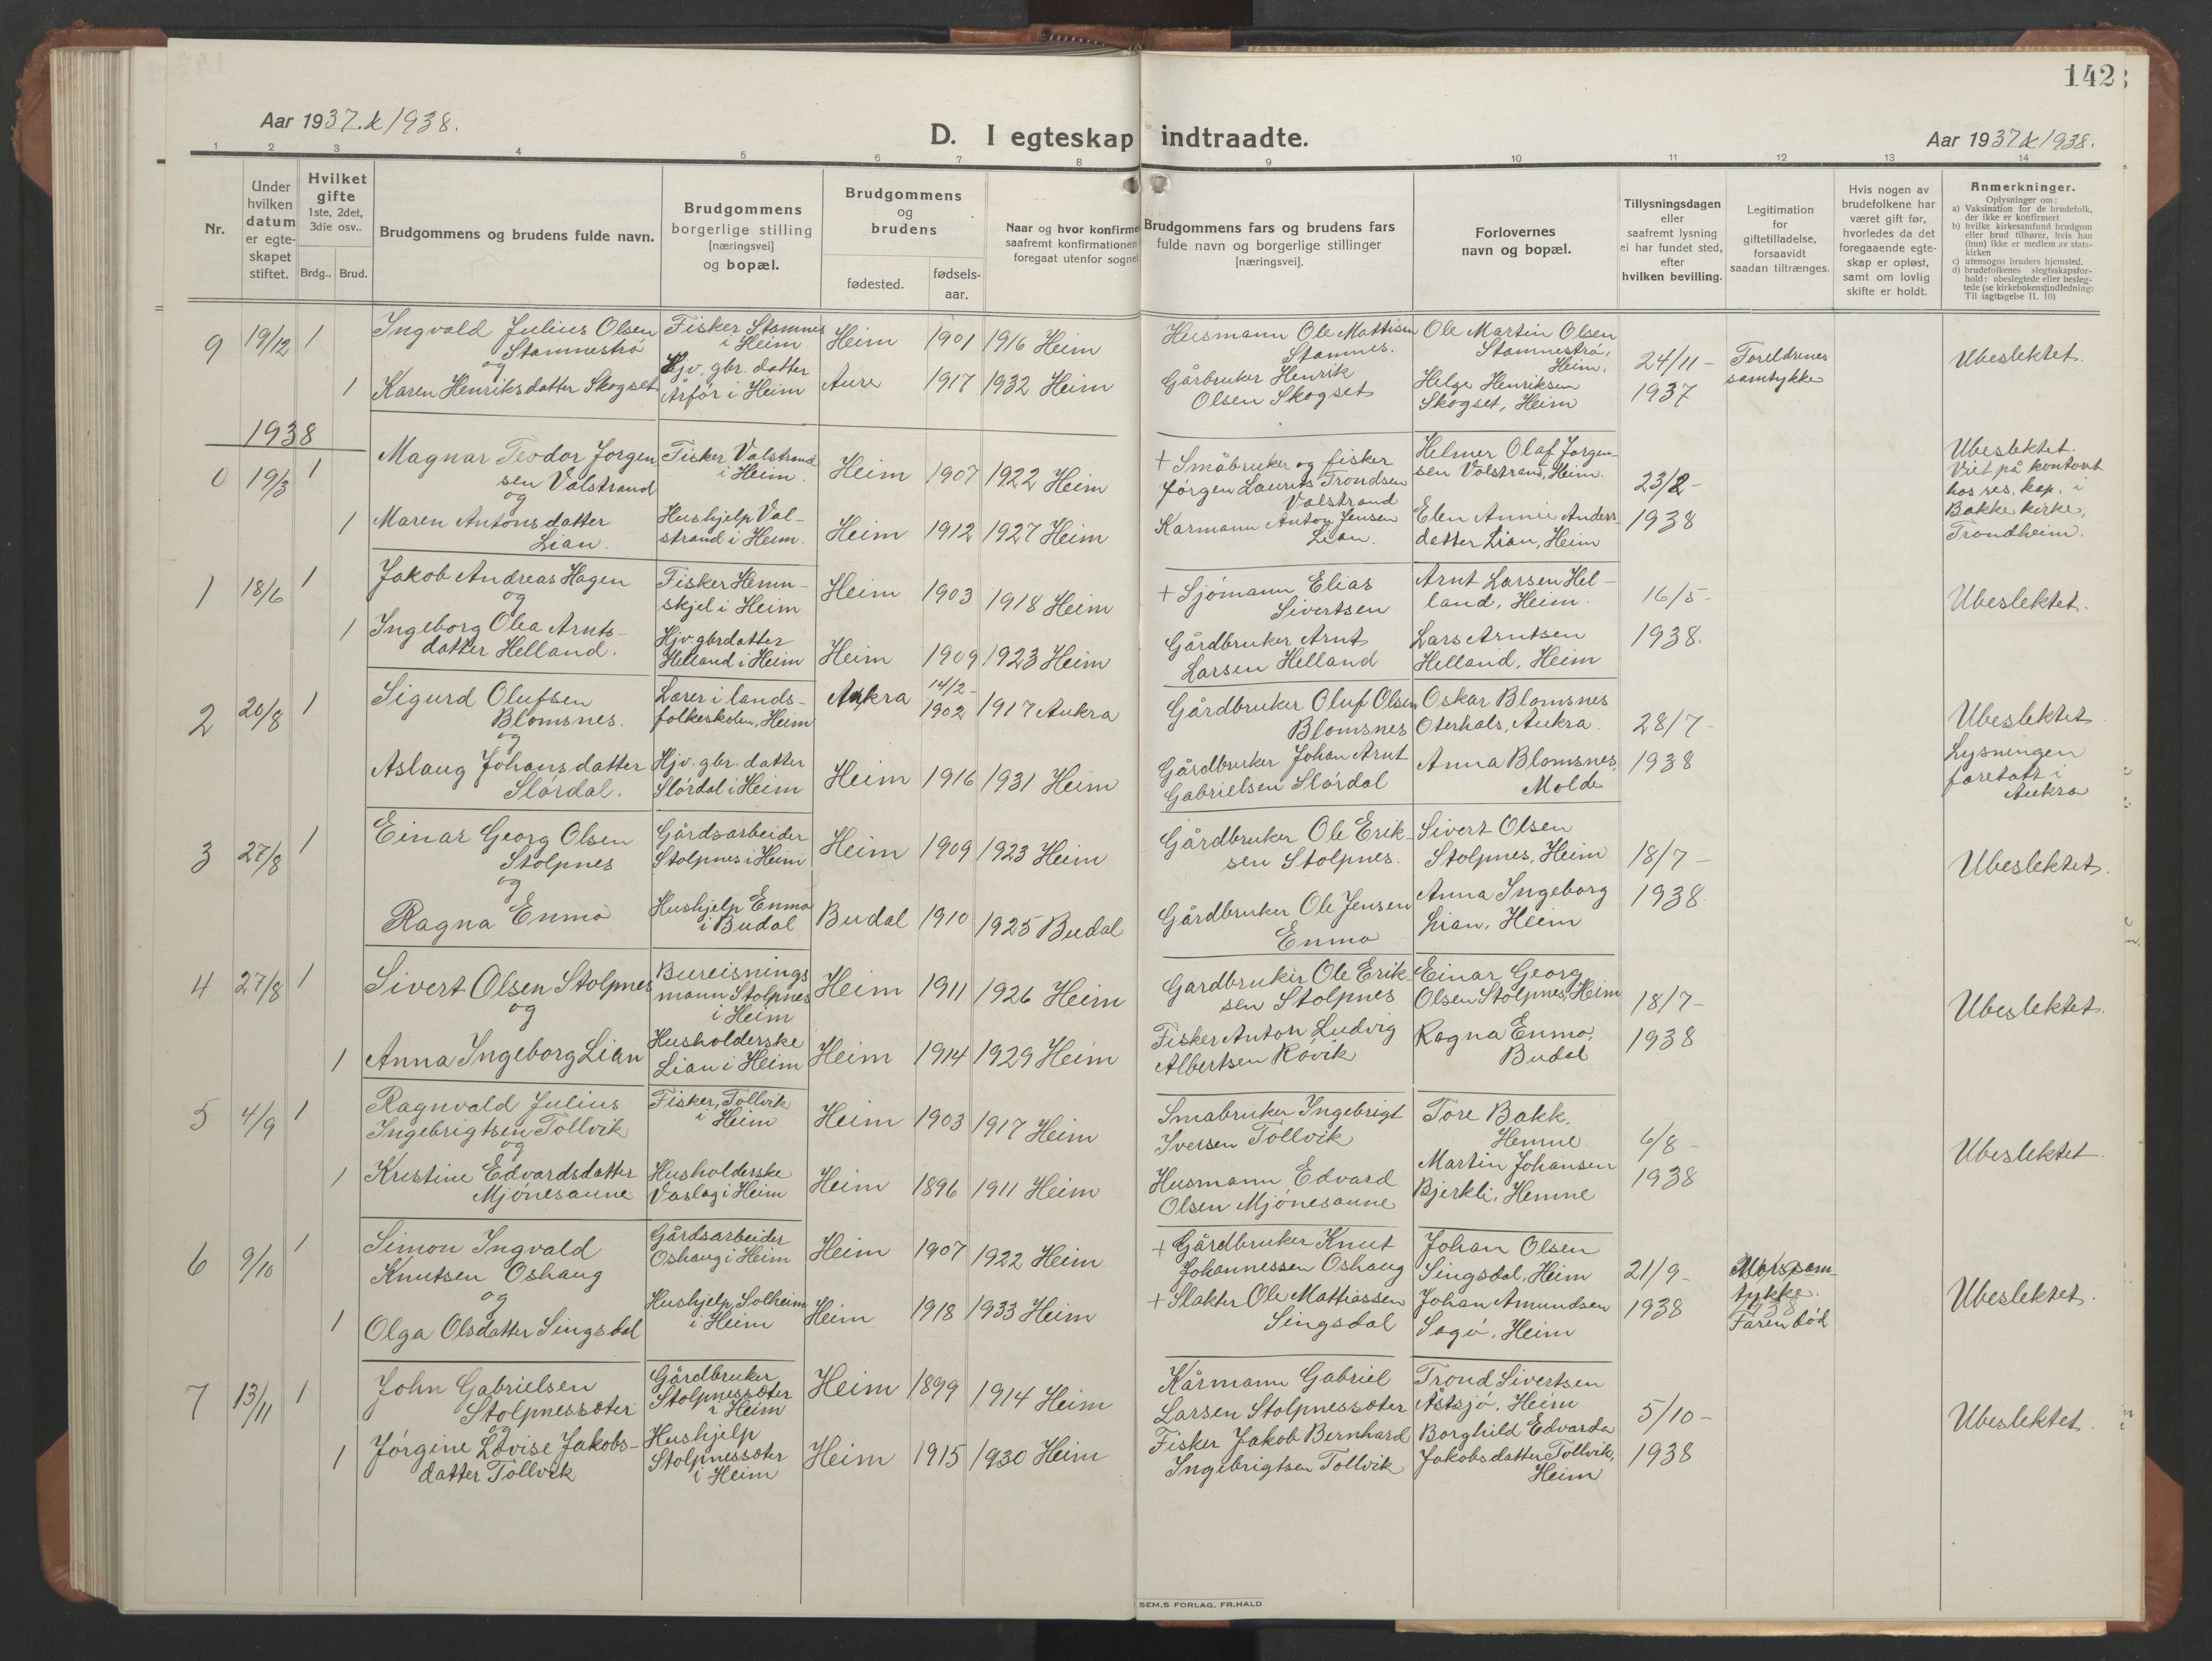 142
Aar 1937 & 1938.
D. I egteskap indtraadte.
Aar 1937 & 1938.
1 2 3 4 5 6 7 8 9 10 11 12 13 14
Nr.
Under
hvilken
datum
er egte-
skapet
stiftet.
Hvilket
gifte
1ste, 2det,
3die osv..
Brdg.. Brud.
Brudgommens og brudens fulde navn.
Brudgommens
borgerlige stilling
[næringsvei]
og bopæl.
Brudgommens
og
brudens
fødested.
fødsels-
aar.
Naar og hvor konfirme
saafremt konfirmationen
foregaat utenfor sognet
Brudgommens fars og brudens fars
fulde navn og borgerlige stillinger
[næringsvei].
Forlovernes
navn og bopæl.
Tillysningsdagen
eller
saafremt lysning
ei har fundet sted,
efter
hvilken bevilling.
Legitimation
for
giftetilladelse,
forsaavidt
saadan tiltrænges.
Hvis nogen av
brudefolkene har
været gift før,
hvorledes da det
foregaaende egte-
skap er opløst,
samt om lovlig
skifte er holdt.
Anmerkninger.
Oplysninger om:
a) Vaksination for de brudefolk,
der ikke er konfirmert
b) hvilke kirkesamfund brudgom
eller brud tilhører, hvis han
(hun) ikke er medlem av stats-
kirken
c) utensogns bruders hjemsted.
d) brudefolkenes slegtsskapsfor-
hold: ubeslegtede eller besleg-
tede (se kirkebokens indledning:
Til iagttagelse II. 10)
9 19/12 1
Ingvald Julius Olsen
Stamnestrø
og
1 Karen Henriksdatter Skogset
Fisker Stamnes
i Heim
Hjv. gbr. datter
Årfór i Heim
Heim 1901 1916 Heim
Aure 1917 1932 Heim
Husmann Ole Mattisen
Stamnes.
Gårbruker Henrik
Olsen Skogset
Ole Martin Olsen
Stamnestrø,
Heim.
Helge Henriksen
Skogset, Heim
24/11 -
1937
Foreldrenes
samtykke
Ubeslektet.
1938
0 19/3 1
Magnar Teodor Jorgen
sen Valstrand
og
1 Maren Antonsdatter
Lian.
Fisker Valstrand
i Heim.
Hushjelp Val-
strand i Heim.
Heim 1907 1922 Heim
Heim 1912 1927 Heim
+ Småbruker og fisker
Jørgen Laurits Trondsen
Valstrand
Karmann Anton Jensen
Lian.
Helmer Olaf Jørgen-
sen Valstrand, Heim.
Elen Annie Anders
datter Lian, Heim
23/2 -
1938
Ubeslektet.
Viet på kontoret
hos res. kap. i
Bakke kirke,
Trondheim.
1 18/6 1
Jakob Andreas Hagen
og
1 Ingeborg Olea Arnts-
datter Helland.
Fisker Hemn-
skjel i Heim
Hjv. gbrdatter
Helland i Heim
Heim 1903 1918 Heim
Heim 1909 1923 Heim
+ Sjømann Elias
Sivertsen
Gårdbruker Arnt
Larsen Helland
Arnt Larsen Hel-
land, Heim.
Lars Arntsen
Helland, Heim
16/5 -
1938.
Ubeslektet.
2 20/8 1
Sigurd Olufsen
Blomsnes.
og
Aslaug Johansdatter
Slórdal.
Lærer i lands-
folkeskolen, Heim
Hjv. gbr. datter
Slórdal i Heim
Aukra 14/2-
1902 1917 Aukra
Heim 1916 1931 Heim
Gårdbruker Oluf Olsen
Blomsnes
Gårdbruker Johan Arnt
Gabrielsen Slórdal
Oskar Blomsnes
Oterhals, Aukra.
Anna Blomsnes,
Molde
28/7 -
1938
Ubeslektet.
Lysningen
foretatt i
Aukra
3 27/8 1
Einar Georg Olsen
Stolpnes
og
Ragna Enmo
Gårdsarbeider
Stolpnes i Heim
Hushjelp Enmo
i Budal
Heim 1909 1923 Heim
Budal 1910 1925 Budal
Gårdbruker Ole Erik-
sen Stolpnes.
Gårdbruker Ole Jensen
Enmo
Sivert Olsen
Stolpnes, Heim
Anna Ingeborg
Lian, Heim
18/7 -
1938.
Ubeslektet.
4 27/8 1
Sivert Olsen Stolpnes
og
1 Anna Ingeborg Lian
Bureisnings
mann Stolpnes
i Heim
Husholderske
Lian i Heim
Heim 1911 1926 Heim
Heim 1914 1929 Heim
Gardbruker Ole Erik-
sen Stolpnes
Fisker Anton Ludvig
Albertsen Róvik
Einar Georg
Olsen Stolpnes, Heim
Ragna Enmo,
Budal
18/7 -
1938
Ubeslektet.
5 4/9 1
Ragnvald Julius
Ingebrigtsen Tollvik
og
1 Kristine Edvardsdatter
Mjónesaune
Fisker, Tollvik
i Heim
Husholderske
Vaslag i Heim
Heim 1903 1917 Heim
Heim 1896 1911 Heim
Smabruker Ingebrigt
Iversen Tollvik
Husmann Edvard
Olsen Mjónesaune
Tore Bakk,
Hemne.
Martin Johansen
Bjerkli, Hemne
6/8 -
1938
Ubeslektet
6 9/10 1
Simon Ingvald
Knutsen Oshaug
og
1 Olga Olsdatter Singsdal
Gårdsarbeider
Oshaug i Heim
Hushjelp, Solheim
i Heim
Heim 1907 1922 Heim
Heim 1918 1933 Heim
+ Gårdbruker Knut
Johannessen Oshaug
+ Slakter Ole Mattiassen
Singsdal
Johan Olsen
Singsdal, Heim
Johan Amundsen
Sagó, Heim
21/9 -
1938
Mors sam-
tykke.
1938
Faren død
Ubeslektet.
7 13/11 1
John Gabrielsen
Stolpnessæter
og
1 Jórgine Lovise Jakobs-
datter Tollvik
Gårdbruker
Stolpnessæter
i Heim
Hushjelp
Stolpnessæter
i Heim
Heim 1899 1914 Heim
Heim 1915 1930 Heim
Kårmann Gabriel
Larsen Stolpnessæter
Fisker Jakob Bernhard
Ingebrigtsen Tollvik
Trond Sivertsen
Åstsjó, Heim
Borghild Edvarda
Jakobsdatter Tollvik,
Heim
5/10 -
1938
Ubeslektet.
SEM,S FORLAG, FR.HALD